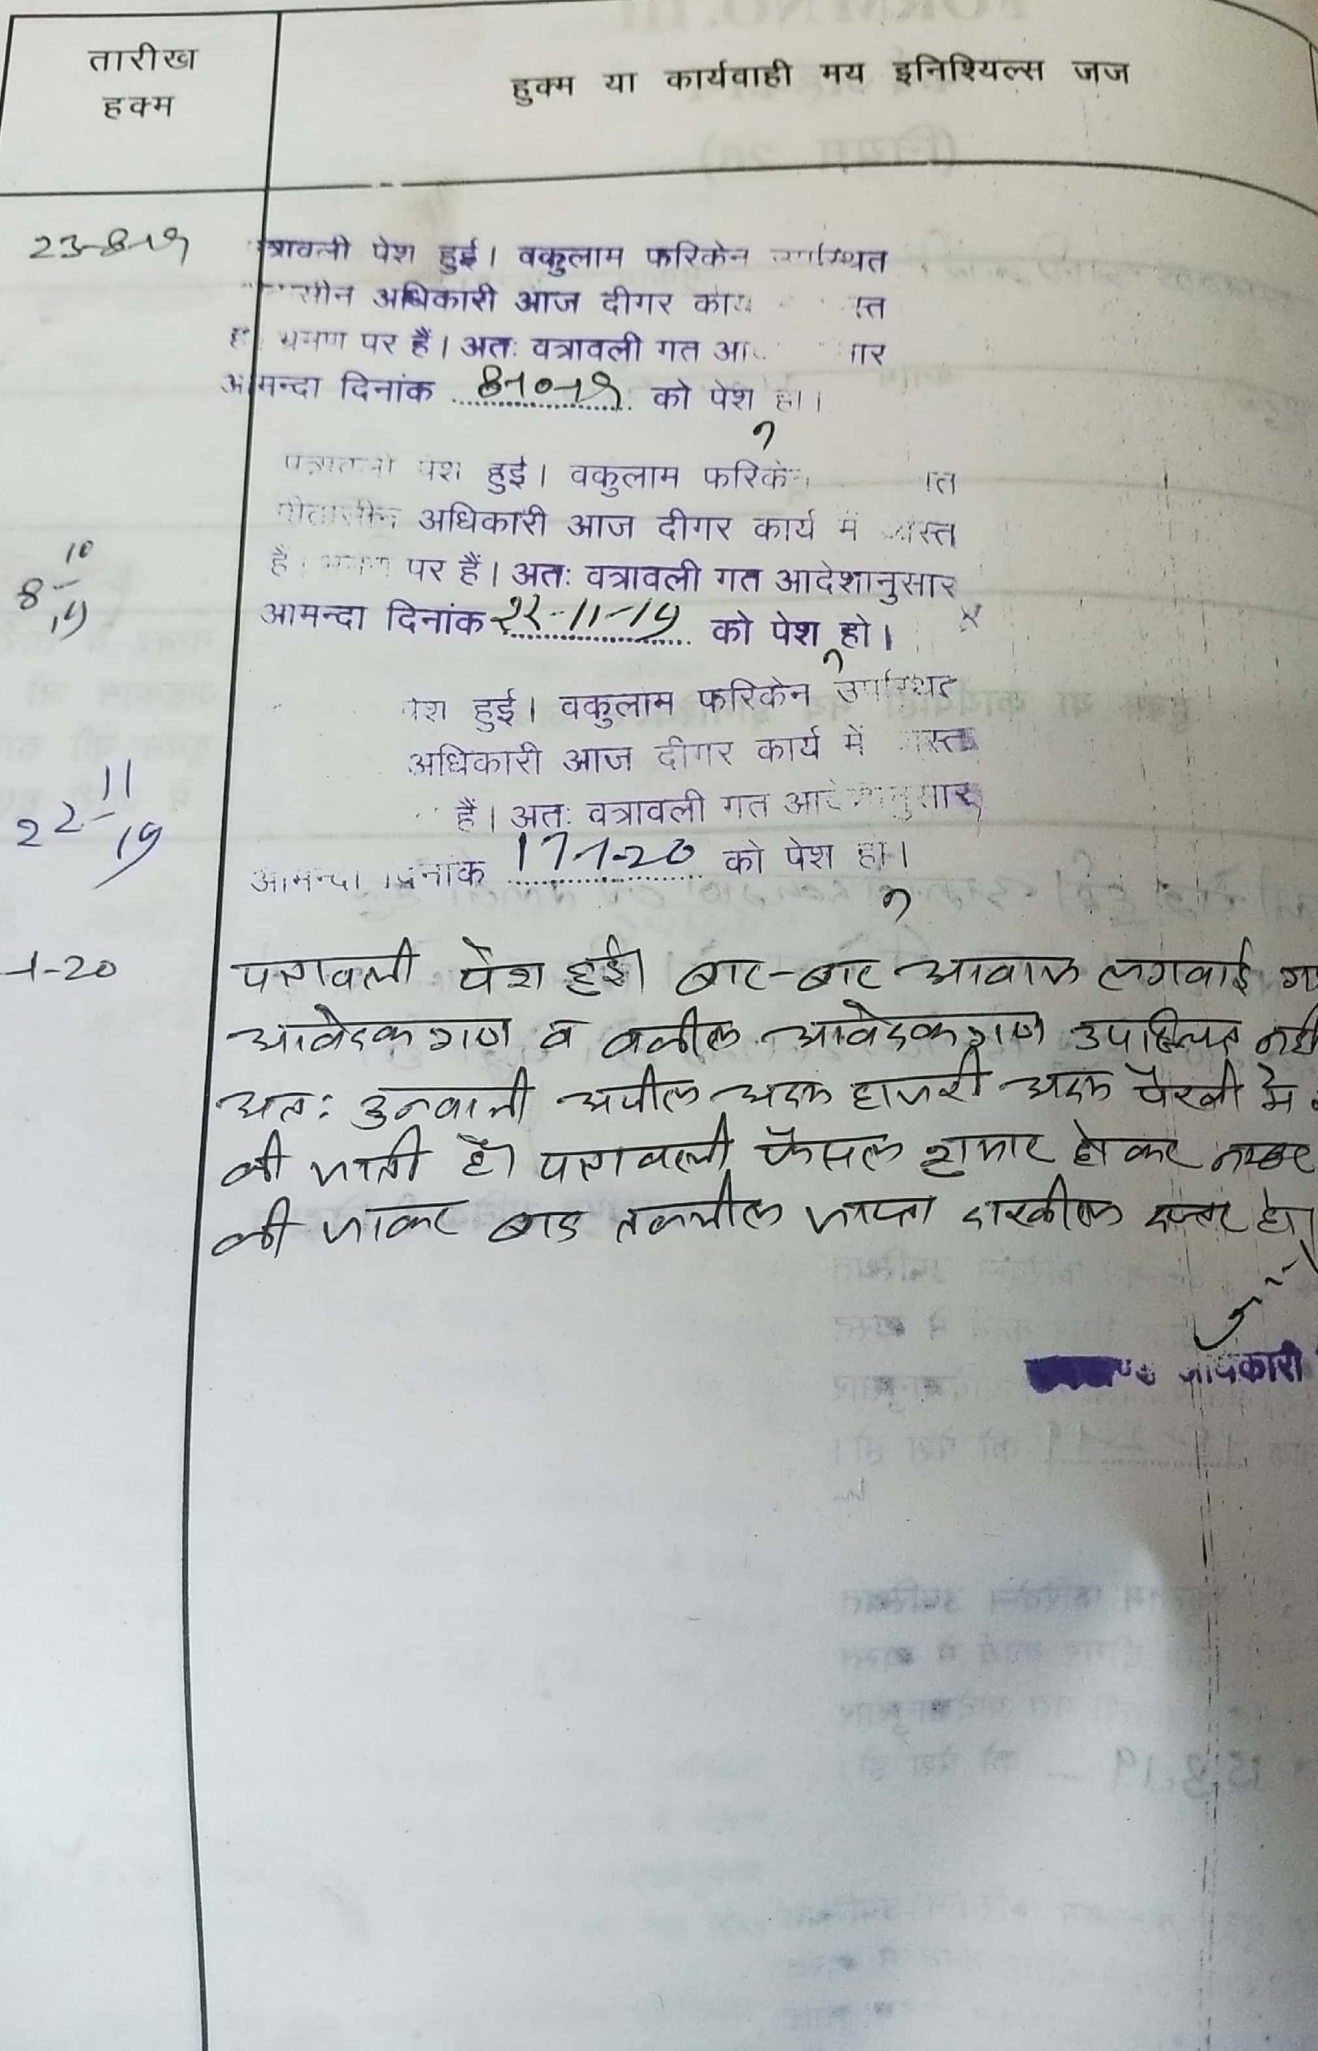 तारीख
हक्म
हुक्म या कार्यवाही मय इनिशियल्स जज
23-8-19
त्रावली पेश हुई। वकुलाम फरिकेन
सीन अधिकारी आज दीगर कार्य
भ्रमण पर हैं। अतः वत्रावली गत
आमन्दा दिनांक 8-10-19 को पेश हो।
पत्रावली पेश हुई। वकुलाम फरिके
पीठासीन अधिकारी आज दीगर कार्य में
पर हैं। अतः वत्रावली गत आदेशानुसार
8-10-19
आमन्दा दिनांक 22-11-19 को पेश हो।
पेश हुई। वकुलाम फरिकेन
अधिकारी आज दीगर कार्य में
22-11-19
हैं। अतः वत्रावली गत आदेशानुसार
आमन्दा दिनांक 17-1-20 को पेश हो।
-1-20
पत्रावली पेश हुई। बार-बार आवाज लगवाई
आवेदकगण व वकील आवेदकगण उपस्थित नहीं
अतः उनवानी अपील अदम हाजरी अदम पैरवी में
की जाती है। पत्रावली फैसल शुमार होकर नम्बर
की जाकर बाद तकमील जाप्ता दाखील दफ्तर हो।
अधिकारी